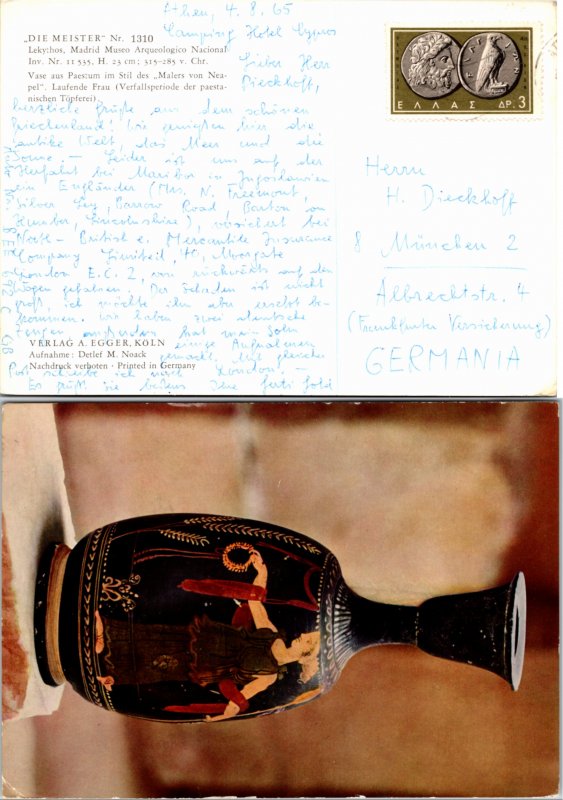 Athen, 4.8.65
Camping Hotel Cypros
„DIE MEISTER“ Nr. 1310
Lekythos, Madrid Museo Arqueologico Nacional
Inv. Nr. 11 535, H. 23 cm; 315-285 v. Chr.
Vase aus Paestum im Stil des „Malers von Neapel“. Laufende Frau (Verfallsperiode der paestanischen Töpferei)
Lieber Herr
Dieckhoff,
herzliche Grüße aus dem schönen
Griechenland! Wir genießen hier die
antike Welt, das Meer und die
Sonne. – Leider ist uns auf der
Herfahrt bei Maribor in Jugoslawien
ein Engländer (Mrs. N. Freemont,
Silver Ley, Barrow Road, Barton on
Humber, Lincolnshire), versichert bei
North-British & Mercantile Insurance
Company Limited, 40, Moorgate
London E.C.2, von rückwärts auf den
Wagen gefahren. Der Schaden ist nicht
groß, ich möchte ihn aber ersetzt be-
kommen. Wir haben zwei deutsche
Zeugen außerdem hat mein Sohn
einige Aufnahmen
gemacht. Mit gleicher
Post schreibe ich nach London. –
Es grüßt Sie bestens Ihr
VERLAG A. EGGER, KÖLN
Aufnahme: Detlef M. Noack
Nachdruck verboten · Printed in Germany
ΕΛΛΑΣ ΔΡ. 3
Herrn
H. Dieckhoff
8 München 2
Albrechtstr. 4
(Frankfurter Versicherung)
GERMANIA